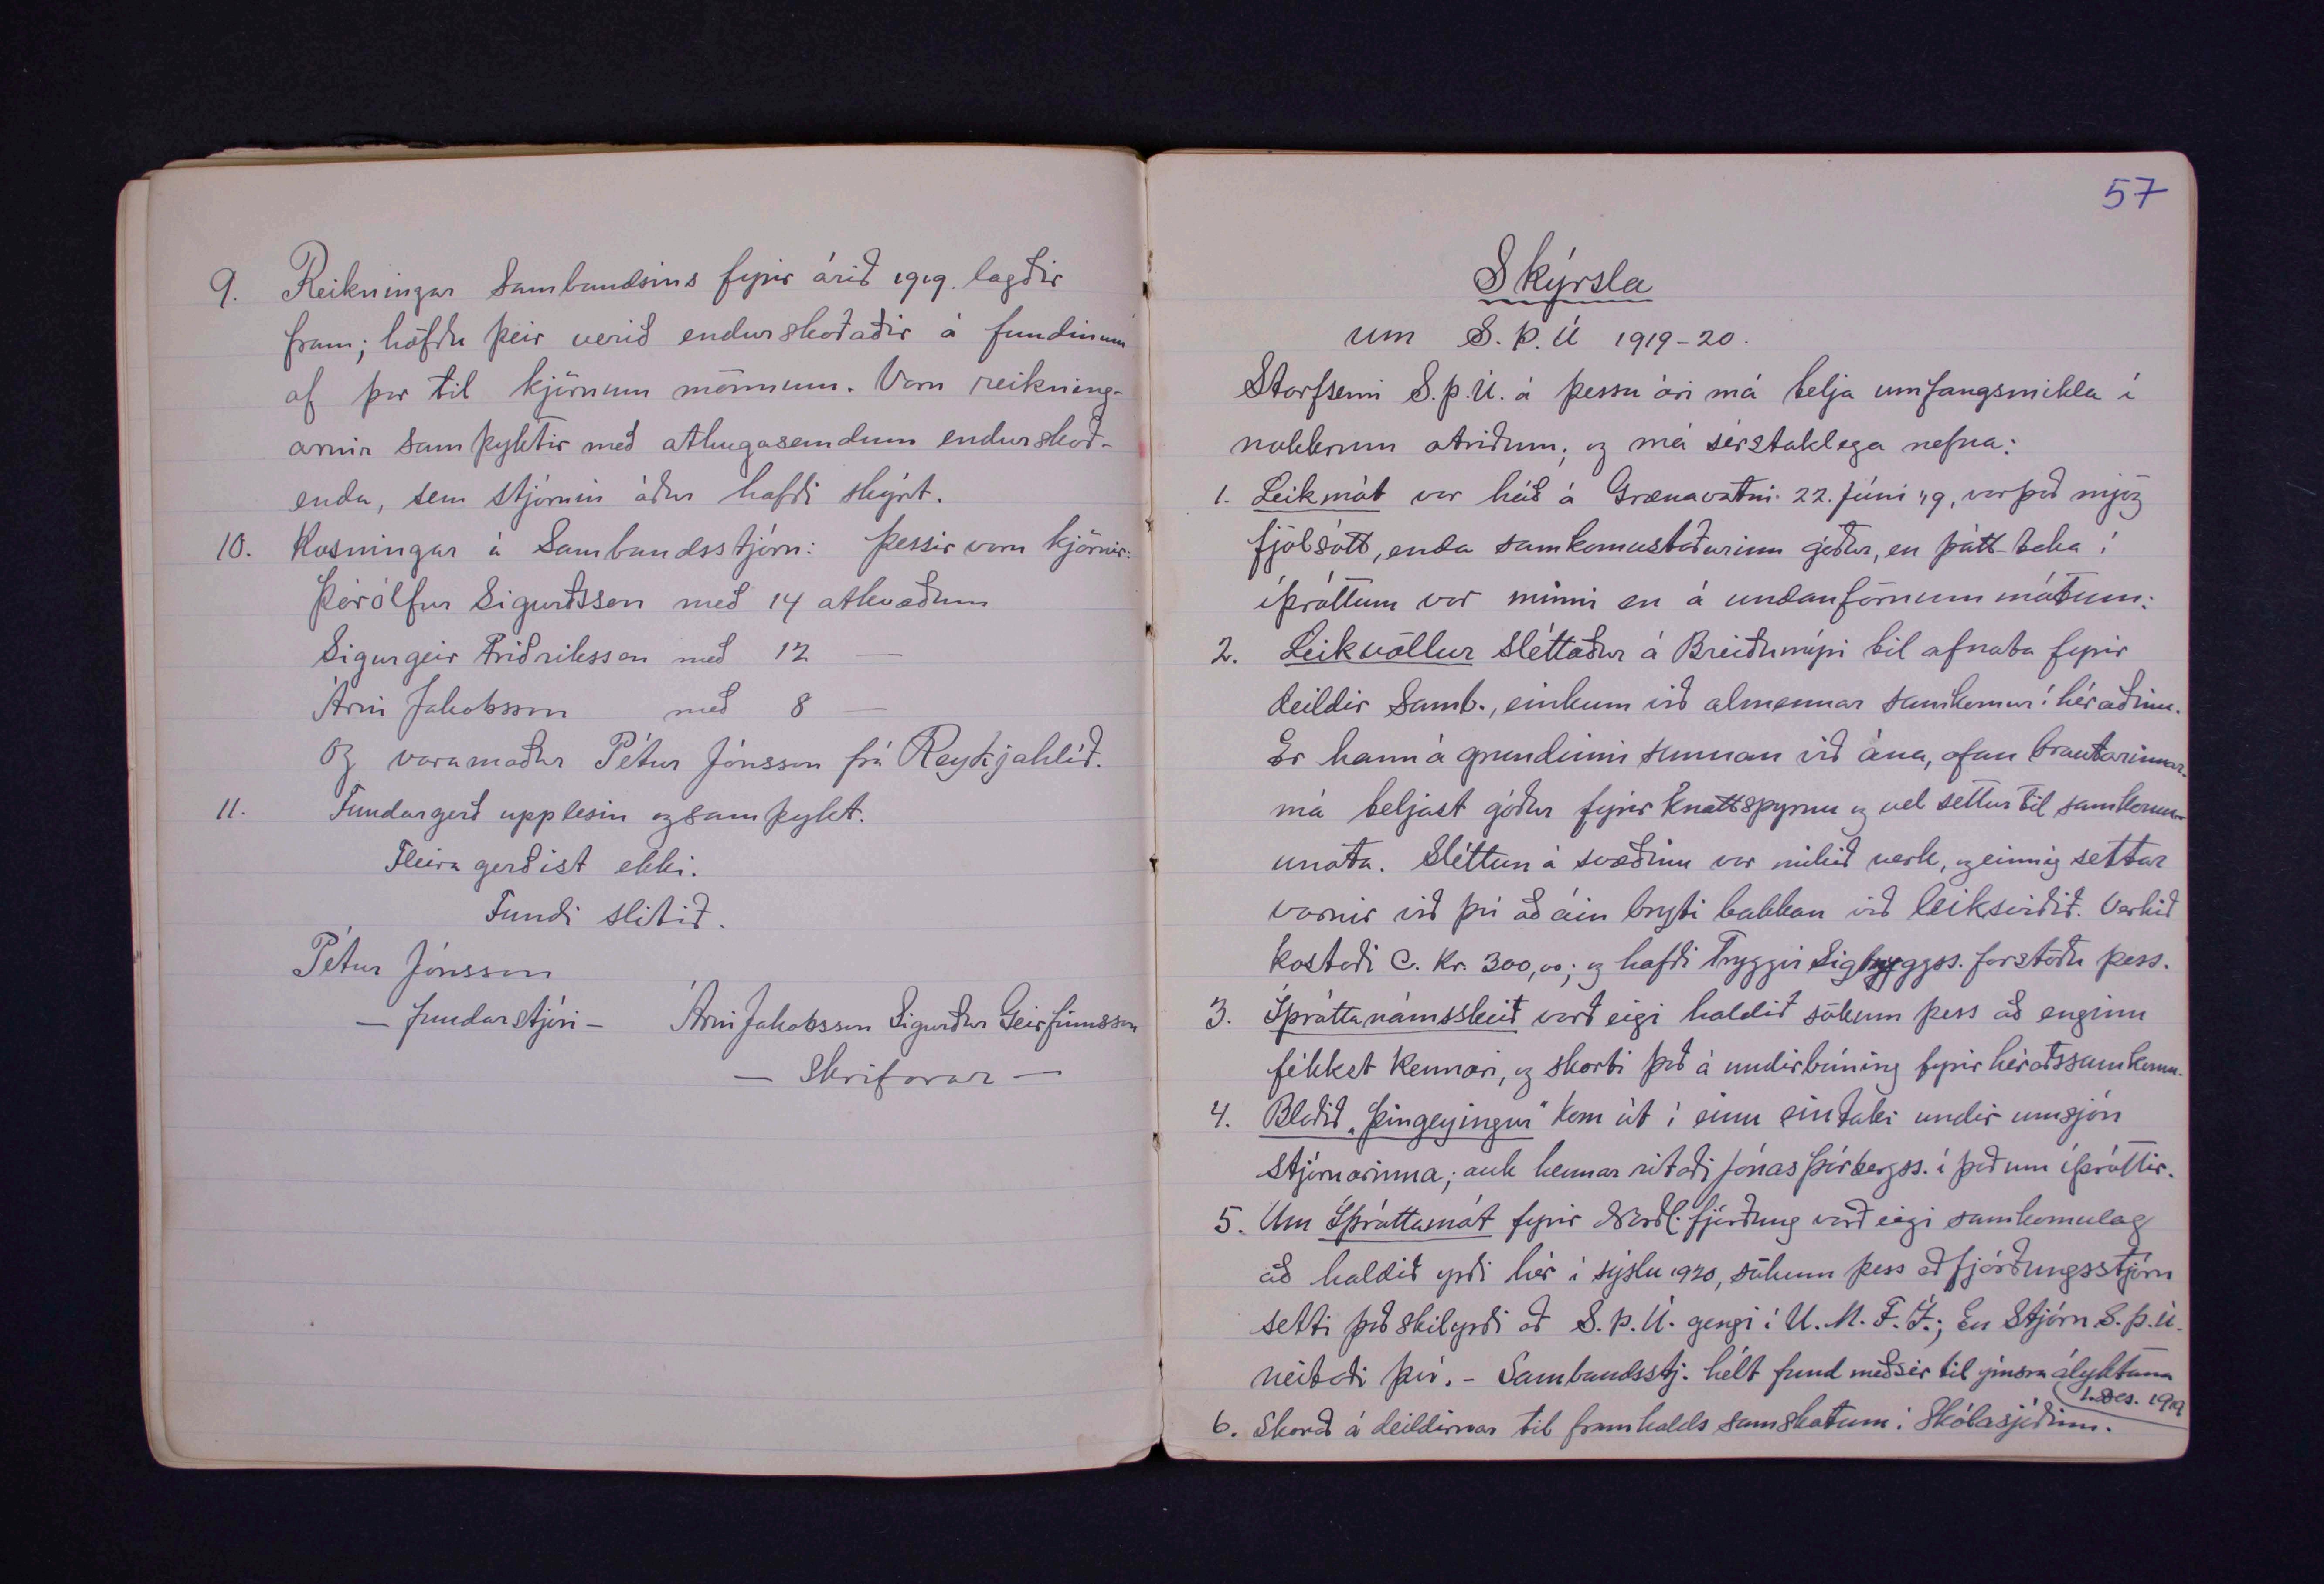 9. Reikningar Sambandsins fyrir árið 1919. lagðir
fram; höfðu þeir verið endurskoðaðir á fundinum
af þar til kjörnum mönnum. Voru reikning-
arnir samþyktir með athugasemdum endurskoð-
enda, sem stjórnin áður hafði skýrt.
10. Kosningar á Sambandsstjórn: Þessir voru kjörnir:
Þórólfur Sigurðsson með 14 atkvæðum
Sigurgeir Friðriksson með 12 —
Árni Jakobsson með 8 —
Og varamaður Pétur Jónsson frá Reykjahlíð.
11. Fundargerð upplesin og samþykt.
Fleira gerðist ekki.
Fundi slitið.
Pétur Jónsson
— fundarstjóri — Árni Jakobsson Sigurður Geirfinnsson
— Skrifarar —
57
Skýrsla
um S.Þ.Ú 1919-20.
Starfsemi S.Þ.Ú. á þessu ári má telja umfangsmikla í
nokkrum atriðum; og má sérstaklega nefna:
1. Leikmót var háð á Grænavatni 22. Júní '19, var það mjög
fjölsótt, enda samkomustaðurinn góður, en þátt-taka í
íþróttum var minni en á undanförnum mótum:
2. Leikvöllur sléttaður á Breiðumýri til afnota fyrir
deildir Samb., einkum við almennar samkomur í héraðinu.
Er hann á grundinni sunnan við ána, ofan brautarinnar.
má teljast góður fyrir knattspyrnu og vel settur til samkomu-
unota. Sléttun á svæðinu var mikið verk, og einnig settar
varnir við því að áin bryti bakkan við leiksviðið. Verkið
kostaði c. Kr. 300,00; og hafði Tryggvi Sigtryggss. forstöðu þess.
3. Íþróttanámsskeið varð eigi haldið sökum þess að enginn
fékkst kennari, og skorti það á undirbúning fyrir héraðssamkomu.
4. Blaðið „Þingeyingur" kom út í einu eintaki undir umsjón
stjórnarinnar; auk hennar ritaði Jónas Þorbergss. í það um íþróttir.
5. Um Íþróttamót fyrir Norðl.fjórðung varð eigi samkomulag
að haldið yrði hér í sýslu 1920, sökum þess að fjórðungsstjórn
setti það skilyrði að S.Þ.Ú. gengi í U.M.F.Í.; En Stjórn S.Þ.Ú.
neitaði því. - Sambandsstj. hélt fund með sér til ýmsra ályktana
1. Des. 1919
6. Skorað á deildirnar til framhalds samskotum í Skólasjóðinn.